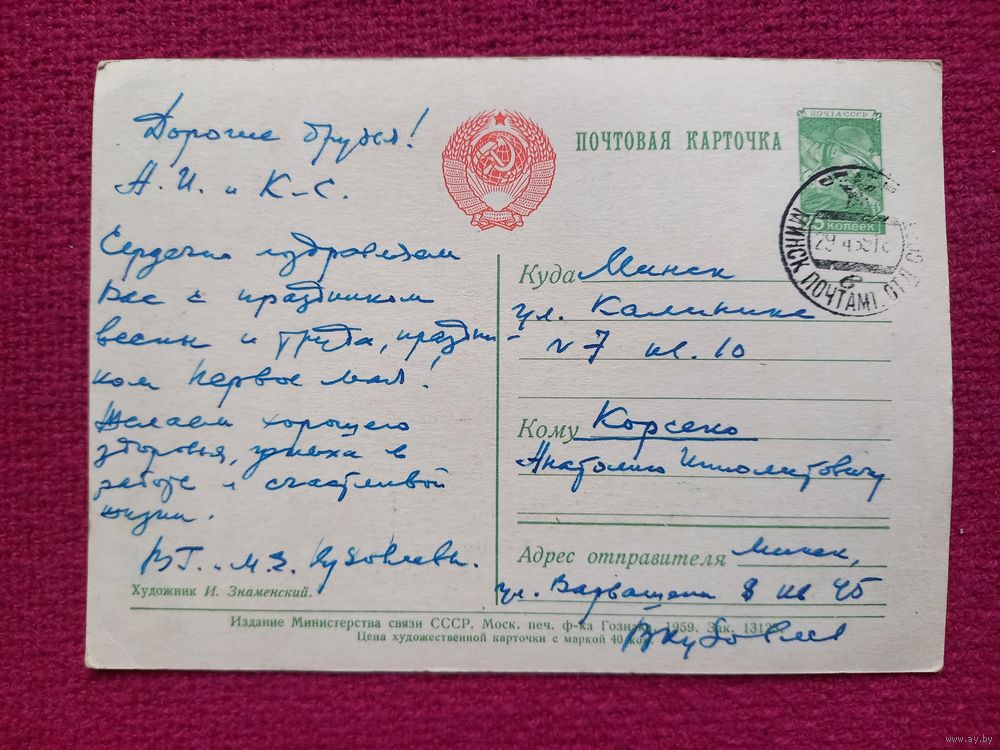 Дорогие друзья!
А.И. и К-С.
Сердечно поздравляем
Вас с праздником
весны и труда, праздни-
ком Первое мая!
Желаем хорошего
здоровья, успеха в
работе и счастливой
жизни.
ВТ. и М.Е.
Художник И. Знаменский.
ПОЧТОВАЯ КАРТОЧКА
ПОЧТА СССР
КОПЕЕК
МИНСК ПОЧТАМТ
Куда Минск
ул. Калинина
№7 кв. 10
Кому Корсеко
Анатолию Ипполитовичу
Адрес отправителя Минск,
ул. 8 кв 45
Издание Министерства связи СССР. Моск. печ. ф-ка Гознака. 1959. Зак.
Цена художественной карточки с маркой 40 коп.
www.ay.by